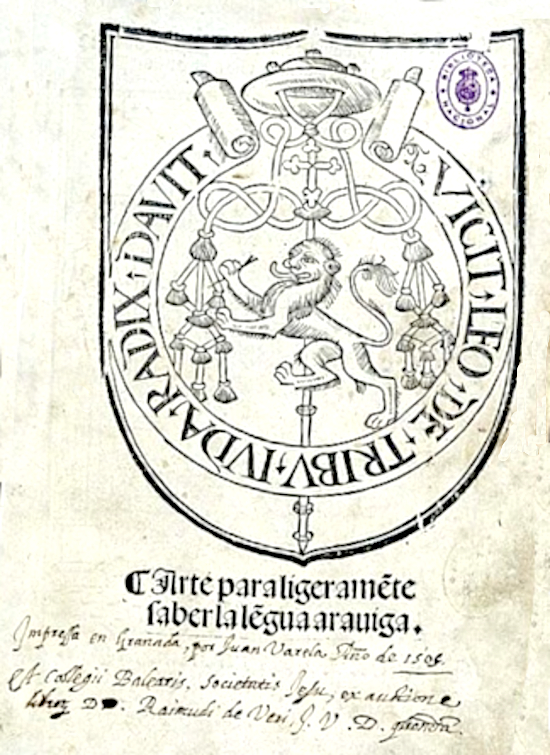 BIBLIOTECA NACIONAL
VICIT · LEO · DE · TRIBV · IVDA · RADIX · DAVIT ·
¶ Arte para ligeramẽte
saber la lẽgua arauiga.
Impressa en Granada, por Juan Varela Año de 1505.
Collegii Balearis, Societatis Jesu, ex
Raimudi de Veri, J. V. D.